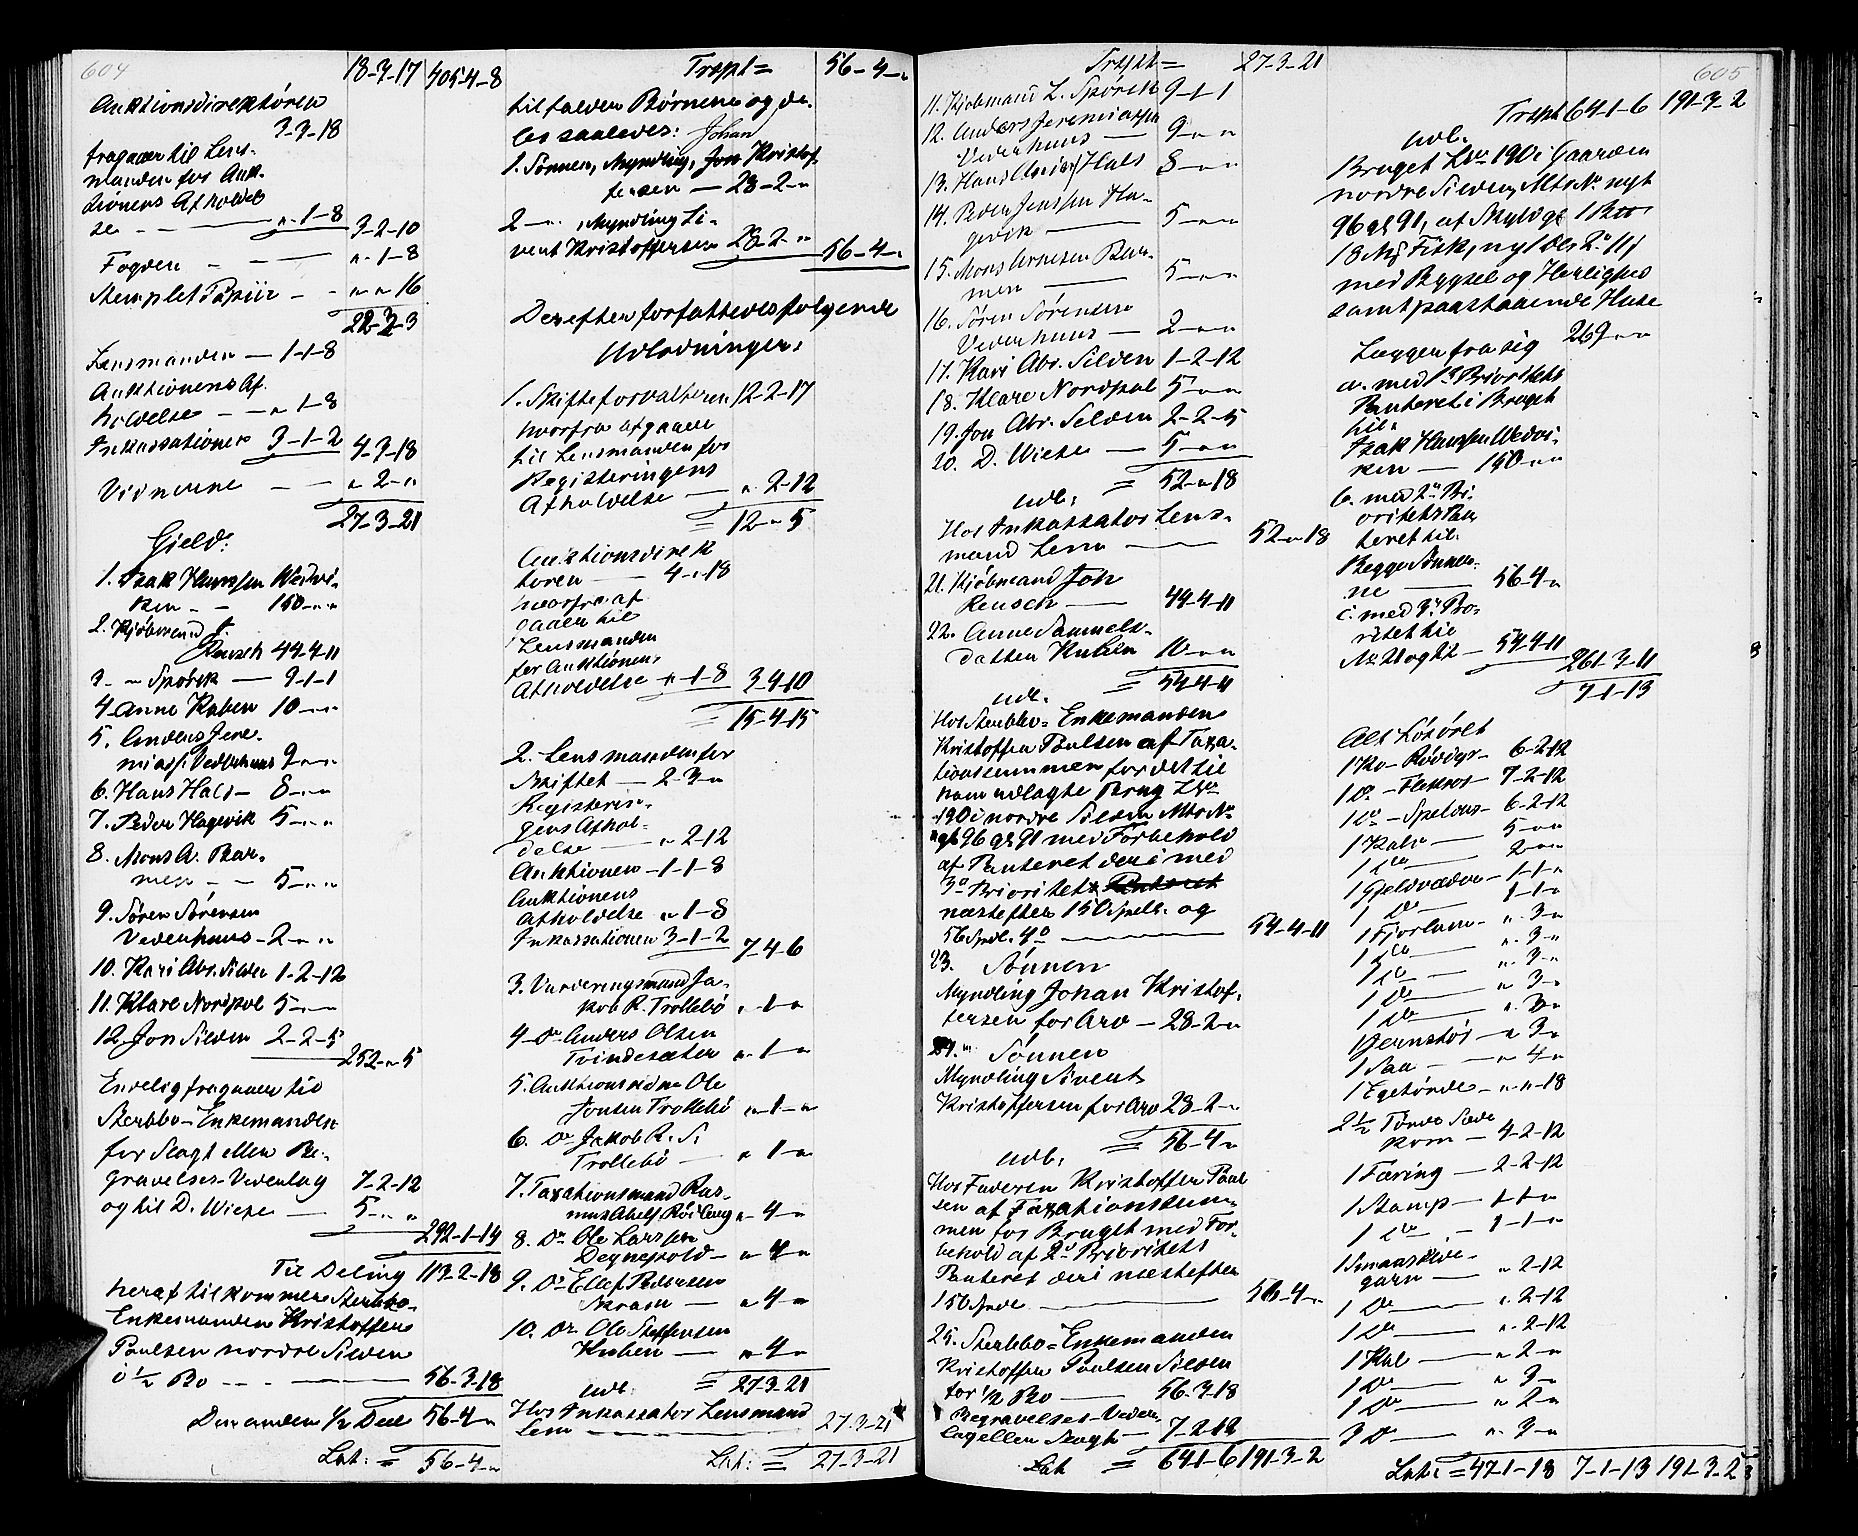 604
18-3-17 405-4-8
Auktionsdirektøren
3-3-18
fragaaer til Lens-
manden for Auk-
tionens Afholdel-
se - - „-1-8 3-2-10
Fogden - - „-1-8
Stemplet Papiir - - „-„-16
22-3-3
Lensmanden - 1-1-8
Auktionens Af-
holdelse - - „-1-8
Inkassationen 3-1-2 4-3-18
Vidnerne - - „-2-„
27-3-21
Gjeld:
1. Isak Hanssen Wedvi-
ken - - 150-„-„
2. Kjøbmand J.
Reusch 44-4-11
3. - „ Spørck - 9-1-1
4. Anne Kuben 10-„-„
5. Anders Jere-
miass. Vederhuus 9-„-„
6. Hans Hals - 8-„-„
7. Peder Hagevik 5-„-„
8. Mons A. Bar-
men - - 5-„-„
9. Søren Sørensen
Vederhuus - 2-„-„
10. Kari Abr. Silden 1-2-12
11. Klare Nordpol 5-„-„
12. Jon Silden 2-2-5
252-„-5
Endelig fragaaer til
Sterbbo-Enkemanden
for Slagt eller Be-
gravelses-Vederlag 7-2-12
og til D. Wiese - 5-„-„
292-1-14
Til Deling 113-2-18
heraf tilkommer Sterbbo-
Enkemanden Kristoffer
Paulsen nordre Silden
i ½ Bo - - - 56-3-18
Den anden ½ Deel 56-4-„
Lat: = 56-4-„
Trspt = 56-4-„
tilfalder Børnene og de-
les saaledes: Johan
1. Sønnen, Myndling, Jon Kristof-
fersen - 28-2-„
2 - „ Myndling Si-
vert Kristoffersen 28-2-„ 56-4-„
Derefter forfattedes følgende
Udlodninger:
1. Skifteforvalteren 12-2-17
hvorfra afgaaer
til Lensmanden for
Registeringens
Afholdelse - „-2-12
= 12-„-5
Auktionsdirek
tøren - 4-„-18
hvorfra af-
gaaer til
Lensmanden
for Auktionens
Afholdelse „-1-8 3-4-10
= 15-4-15
2. Lensmanden for
Skiftet - 2-3-„
Registerin-
gens Afhol-
delse - „-2-12
Auktionen - 1-1-8
Auktionens
Afholdelse „-1-8
Inkassationen 3-1-2 7-4-6
3. Vurderingsmand Ja-
kob R. Trollebø „-1-„
4. Do Anders Olsen
Tvindesæter „-1-„
5. Auktionsvidne Ole
Jonsen Trollebø „-1-„
6. Do Jakob R. S.
Trollebø - „-1-„
7. Taxationsmand Ras-
mus Abels. Rødberg „-4-„
8. Do Ole Larssen
Degnepold - „-4-„
9. Do Ellef Pedersen
Skram - „-4-„
10. Do Ole Steffensen
Kuben - „-4-„
udl: = 27-3-21
Hos Inkassator Lensmand
Lem - 27-3-21
Lat: = 27-3-21
Trspt = 27-3-21
11. Kjøbmand L. Spørck 9-1-1
12. Anders Jeremiassen
Vederhuus - 9-„-„
13. Hans Hals 8-„-„
14. Peder Jenssen Ha-
gevik - 5-„-„
15. Mons Arnesen Bar-
men - 5-„-„
16. Søren Sørensen
Vederhuus - 2-„-„
17. Kari Abr. Silden 1-2-12
18. Klare Nordpol 5-„-„
19. Jon Abr. Silden 2-2-5
20. D. Wiese - 5-„-„
= 52-„-18
udl:
Hos Inkassator Lens-
mand Lem - 52-„-18
21. Kjøbmand Joh
Reusch - 44-4-11
22. Anne Samuels-
datter Kuben 10-„-„
= 54-4-11
udl.
Hos Sterbbo-Enkemanden
Kristoffer Paulsen af Taxa-
tionssummen for det til
ham udlagte Brug Lno
190 i nordre Silden Mtr No
nyt 96 gl 91 med Forbehold
af Panteret deri med
3o Prioritets Panteret
næstefter 150 Spdl. og
56 Spdl. 4o - 54-4-11
23. Sønnen
Myndling Johan Kristof-
fersen for Arv - 28-2-„
24. Sønnen
Myndling Sivert
Kristoffersen for Arv 28-2-„
= 56-4-„
udl:
Hos Faderen Kristoffer Paul
sen af Taxationssum-
men for Bruget med For-
behold af 2o Prioritets
Panteret deri næstefter
150 Spdl. - 56-4-„
25. Sterbbo-Enkemanden
Kristoffer Paulsen Silden
for ½ Bo - 56-3-18
Begravelses-Veder-
lag eller Slagt - 7-2-12
Lat = 64-1-6 191-3-2
605
Trspt 64-1-6 191-3-2
udl.
Bruget Lno 190 i Gaarden
nordre Silden, Mtr No nyt
96 gl 91, af Skyld gl 1
18 Mk Fisk, ny 1 Dlr 2 11 ſ
med Bygsel og Herlighed
samt paastaaende Huse
269-„-„
Lægger fra sig
a. med 1o Prioritets
Panteret i Bruget
til:
Isak Hanssen Wedvi-
ken - 150-„-„
b. med 2o Pri-
oritets Pan-
teret til:
Begge Sønner-
ne - 56-4-„
c. med 3o Prio-
ritet til
No 21 og 22 - 54-4-11 261-3-11
7-1-13
Alt Løsøret
1 Ko - Røddyr - 6-2-12
1 Do - Flekros - 7-2-12
1 Do - Spelros - 6-2-12
1 Kalv - 5-„-„
1 Do - 2-„-„
1 Gjeldvæder - 1-1-„
1 Do - 1-1-„
1 Fjorlam - „-3-„
1 Do - „-3-„
1 Do - „-3-„
1 Do - „-3-„
1 Do - „-3-„
1 Jernstør - „-3-„
1 Saa - „-4-„
1 Egetønde - „-„-18
2½ Tønde Sæde
korn - 4-2-12
1 Færing - 2-2-12
1 Stamp - 1-1-„
1 Do - 1-1-„
1 Smaasilde-
garn - „-2-12
1 Do - „-2-12
1 Do - „-2-12
1 Kal - „-2-„
1 Do - „-3-„
1 Do - „-2-„
3 Do - „-3-„
Lat: = 47-1-18 7-1-13 191-3-2